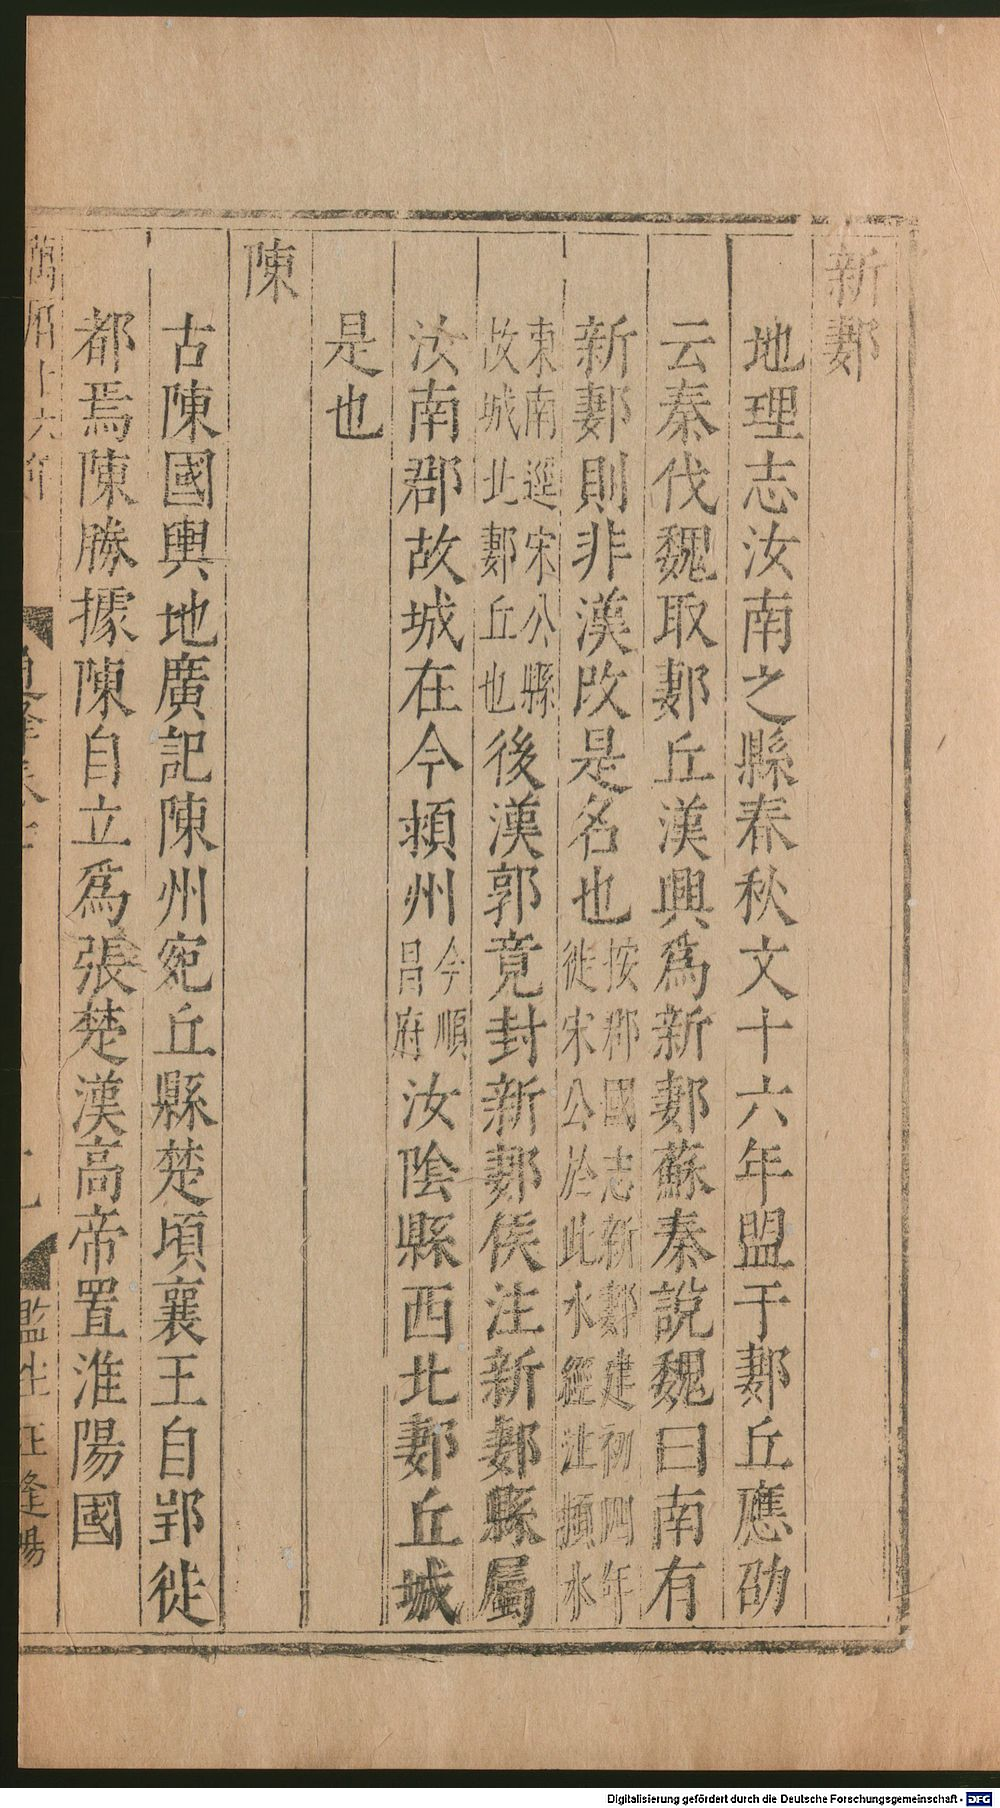 新郪
地理志汝南之縣春秋文十六年盟于郪丘應劭
云秦伐魏取郪丘漢興爲新郪蘇秦說魏曰南有
新郪則非漢改是名也按郡國志新郪建初四年徙宋公於此水經注潁水
東南逕宋公縣故城北郪丘也後漢郭竟封新郪侯注新郪縣屬
汝南郡故城在今潁州今順昌府汝陰縣西北郪丘城
是也
陳
古陳國輿地廣記陳州宛丘縣楚頃襄王自郢徙
都焉陳勝據陳自立爲張楚漢高帝置淮陽國
萬曆十六年
監生
Digitalisierung gefördert durch die Deutsche Forschungsgemeinschaft - DFG